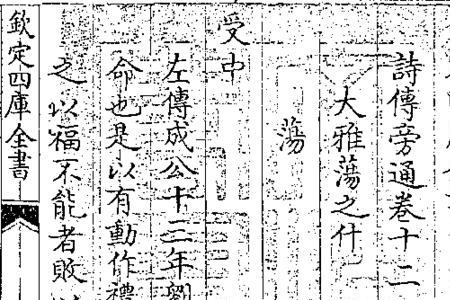 詩傳旁通卷十二
大雅蕩之什
蕩
受中
左傳成公十三年劉
命也是以有動作禮
之以福不能者敗以
欽定四庫全書